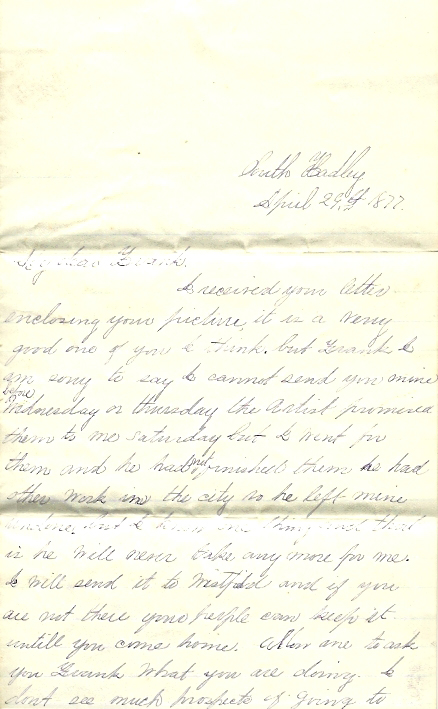 South Hadley
April 29th 1877.
My dear Frank.
I received your letter
enclosing your picture, it is a very
good one of you I think. but Frank I
am sorry to say I cannot send you mine
before
Wednesday or thursday the Artist promised
them to me Saturday but I went for
them and he had not finished them he had
other work in the city so he left mine
but I one thing and that
is he will never take any more for me.
I will send it to Westfield and if you
are not there your people can keep it
untill you come home. Allow me to ask
you Frank what you are doing. I
dont see much prospects of going to